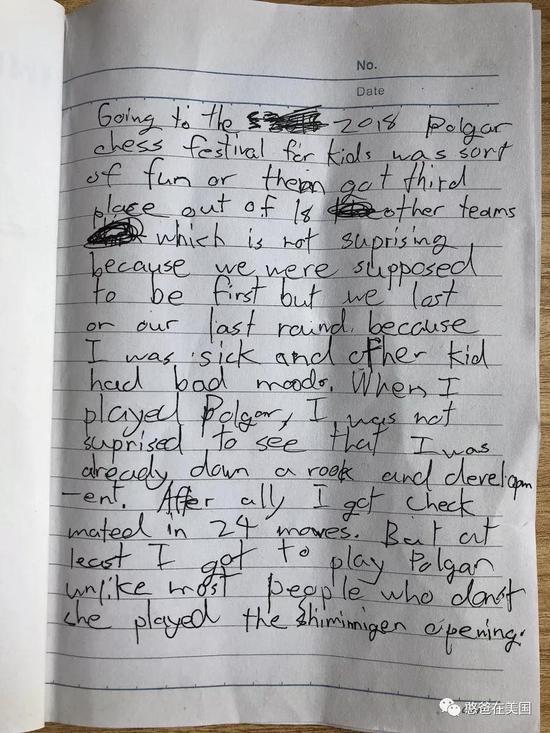 No.
Date
Going to the 2018 Polgar
chess festival for kids was sort
of fun or then got third
place out of 18 other teams
which is not suprising
because we were supposed
to be first but we lost
or our last round. because
I was sick and other kid
had bad moods. When I
played Polgar, I was not
suprised to see that I was
already down a rook and developm
-ent. After ally I got check
mated in 24 moves. But at
least I got to play Polgar
unlike most people who donst
she played the shiminigen opening.
憨爸在美国